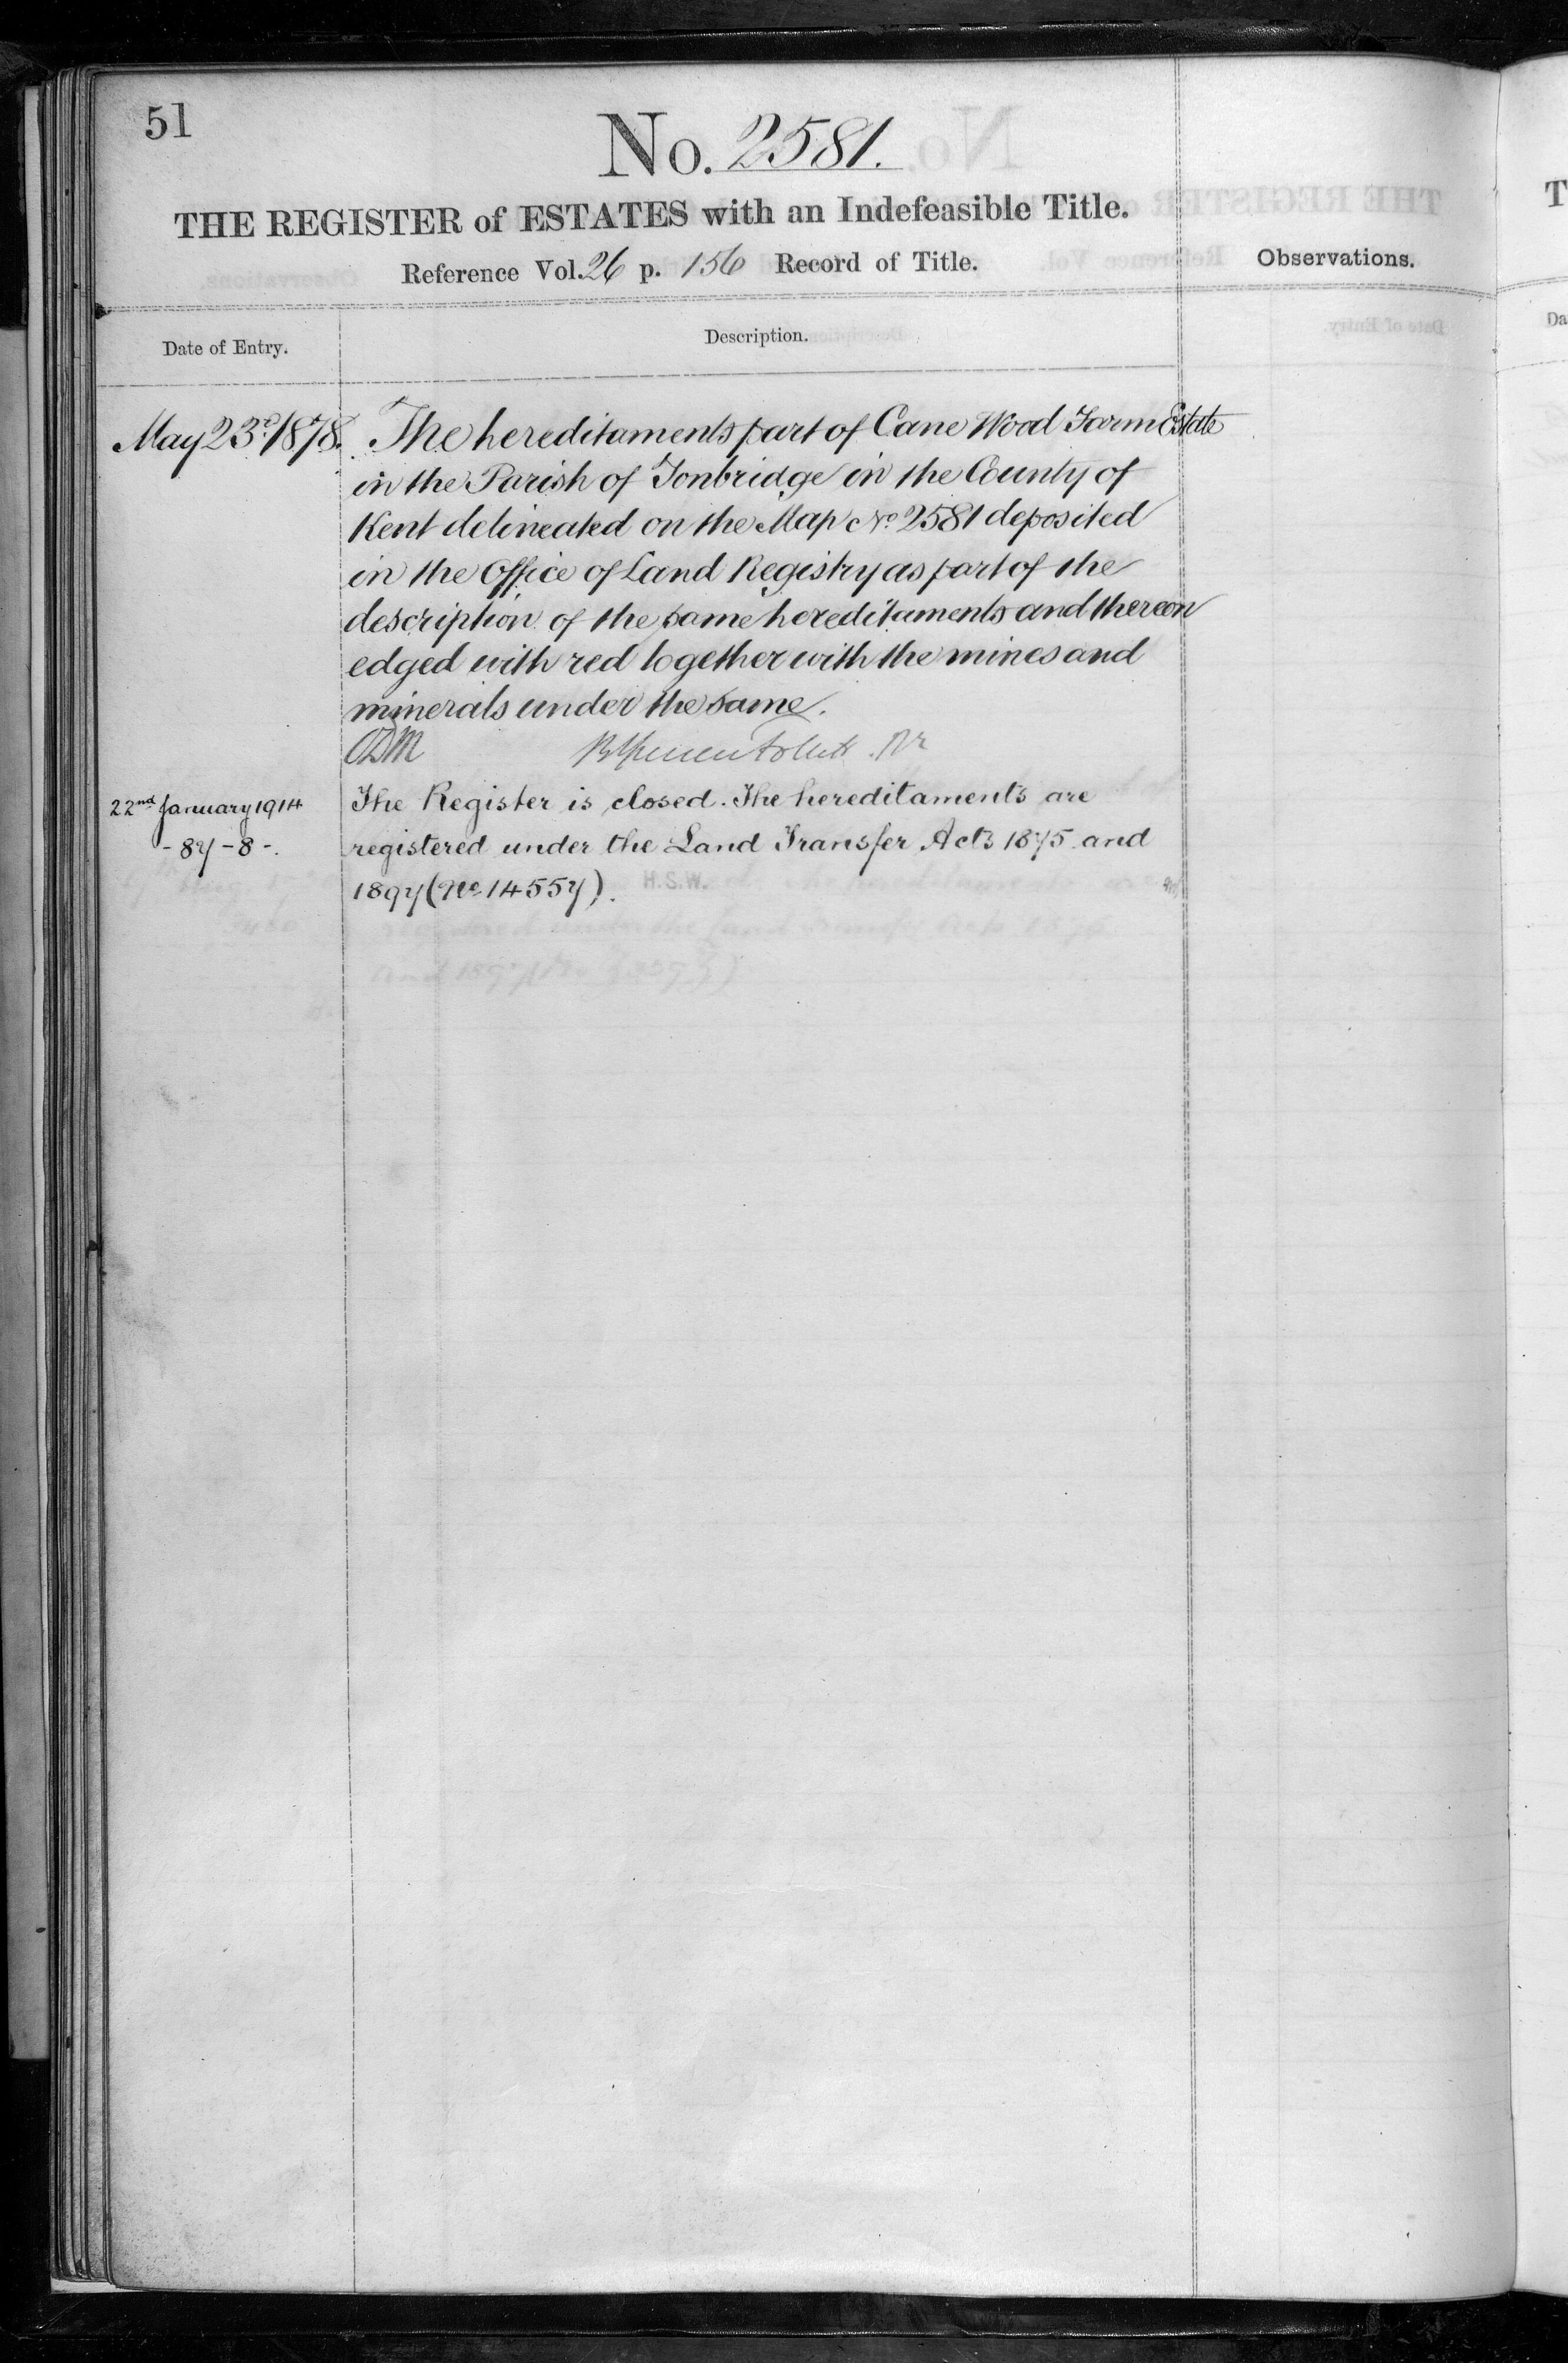 51
No. 2581.
THE REGISTER of ESTATES with an Indefeasible Title.
Reference Vol. 26 p. 156 Record of Title.
Observations.
Date of Entry.
Description.
May 23d. 1878. The hereditaments part of Cane Wood Farm Estate
in the Parish of Tonbridge in the County of
Kent delineated on the Map No. 2581 deposited
in the Office of Land Registry as part of the
description of the same hereditaments and thereon
edged with red together with the mines and
minerals under the same.
22nd January 1914 The Register is closed. The hereditaments are
- 87 - 8 -. registered under the Land Transfer Acts 1875 and
1897 (No. 14557). H.S.W.